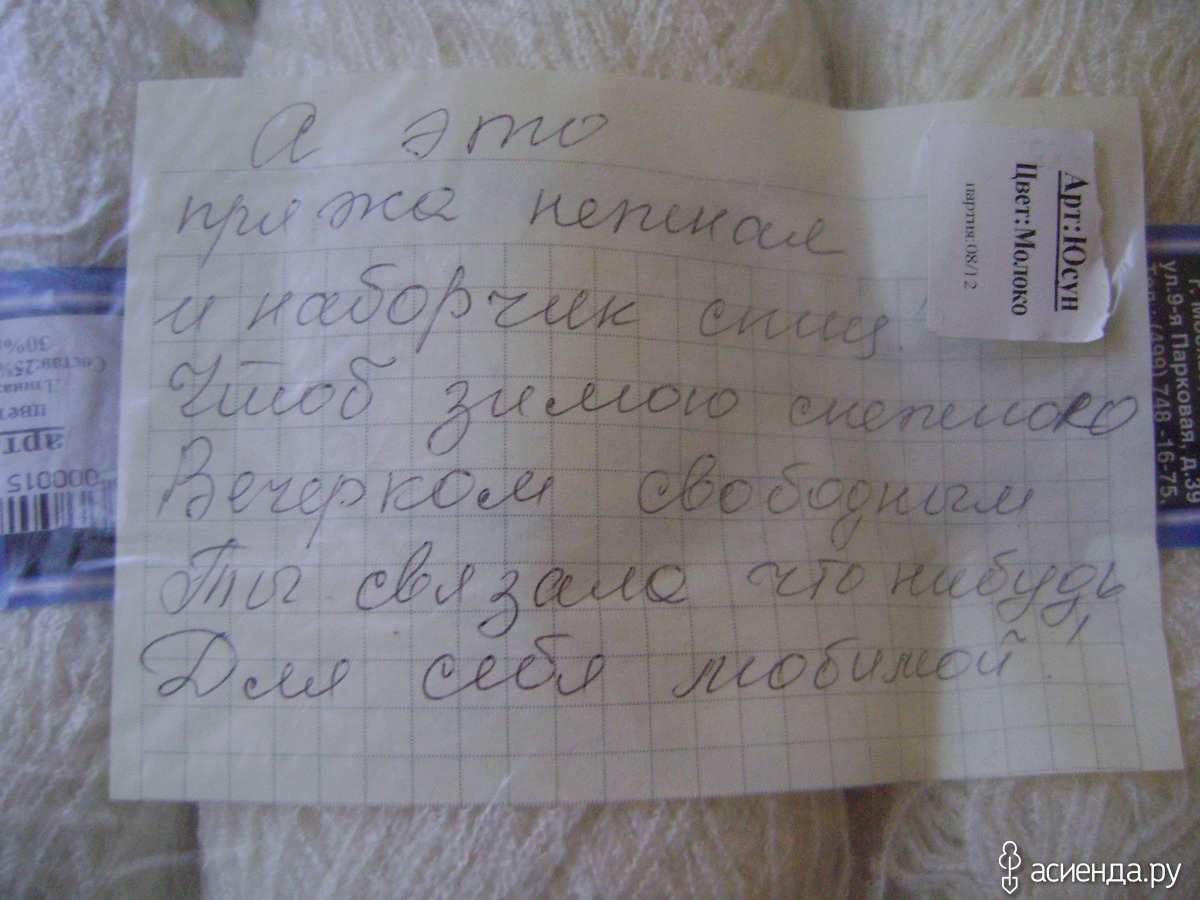 А это
пряжа нежная
и наборчик спиц!
Чтоб зимою снежною
Вечерком свободным
Ты связала что нибудь
Для себя любимой!
Арт:Юсун
Цвет:Молоко
партия:08/12
ул.9-я Парковая, д.39
Тел.: (499) 748 -16-75
000015
арт
цвет
Длина:
Состав:25%
30%
асиенда.ру